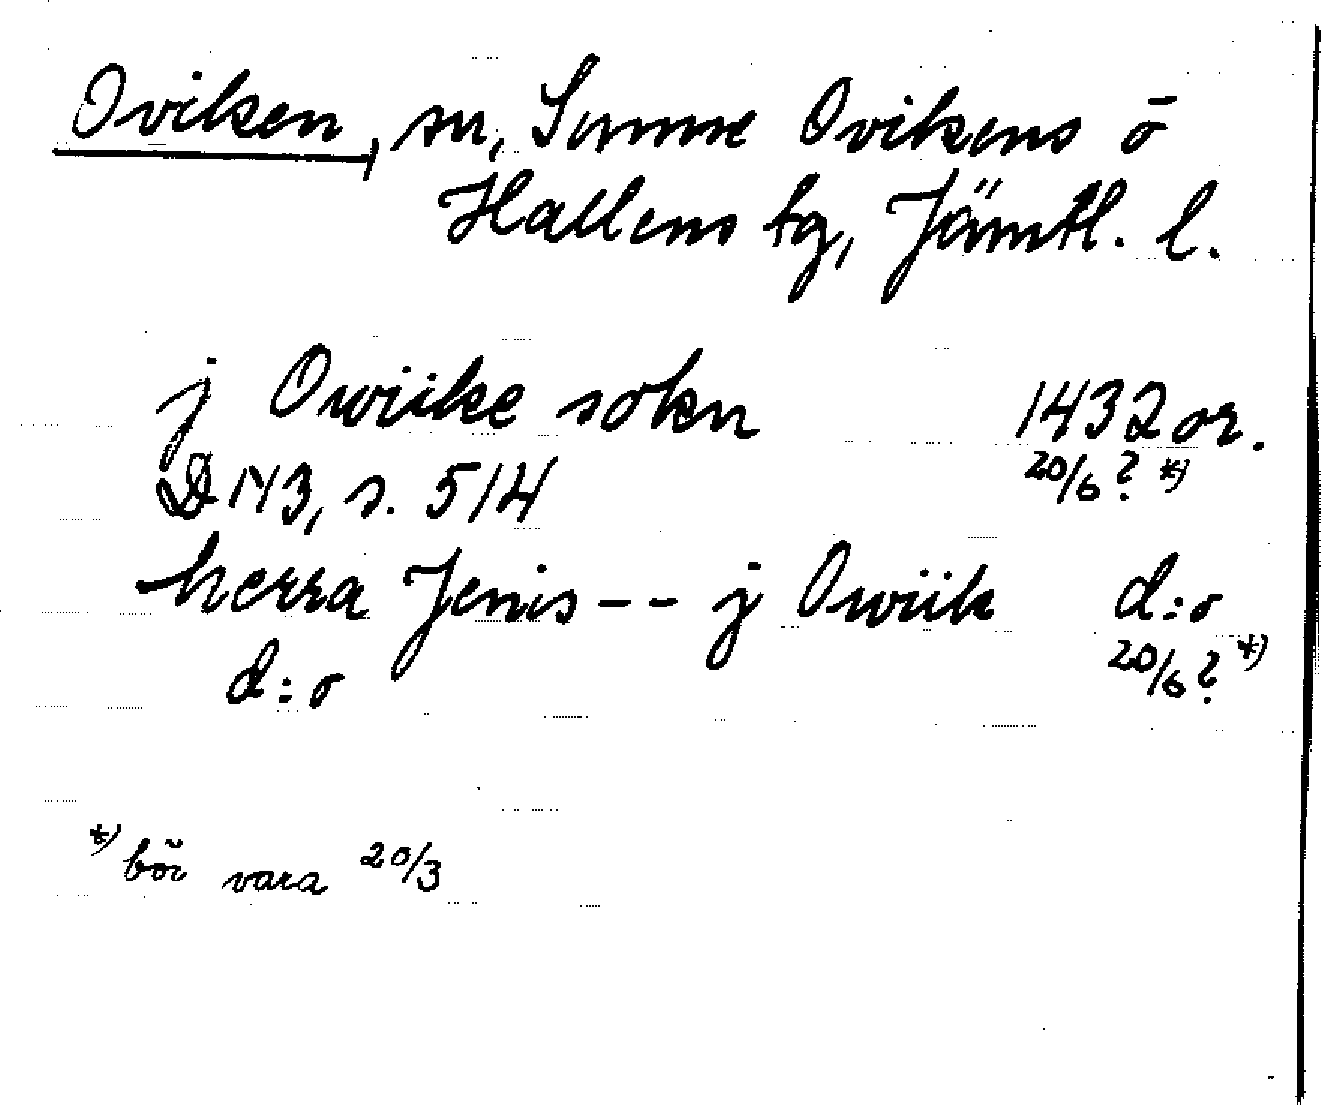 Oviken, sn, Sunne Ovikens o
Hallens tg, Jämtl. l.
j Owiike sokn 1432 or.
20/6? *)
D 143, s. 514
herra Jenis - - j Owiik d:o
d:o 20/6? *)
*) bör vara 20/3